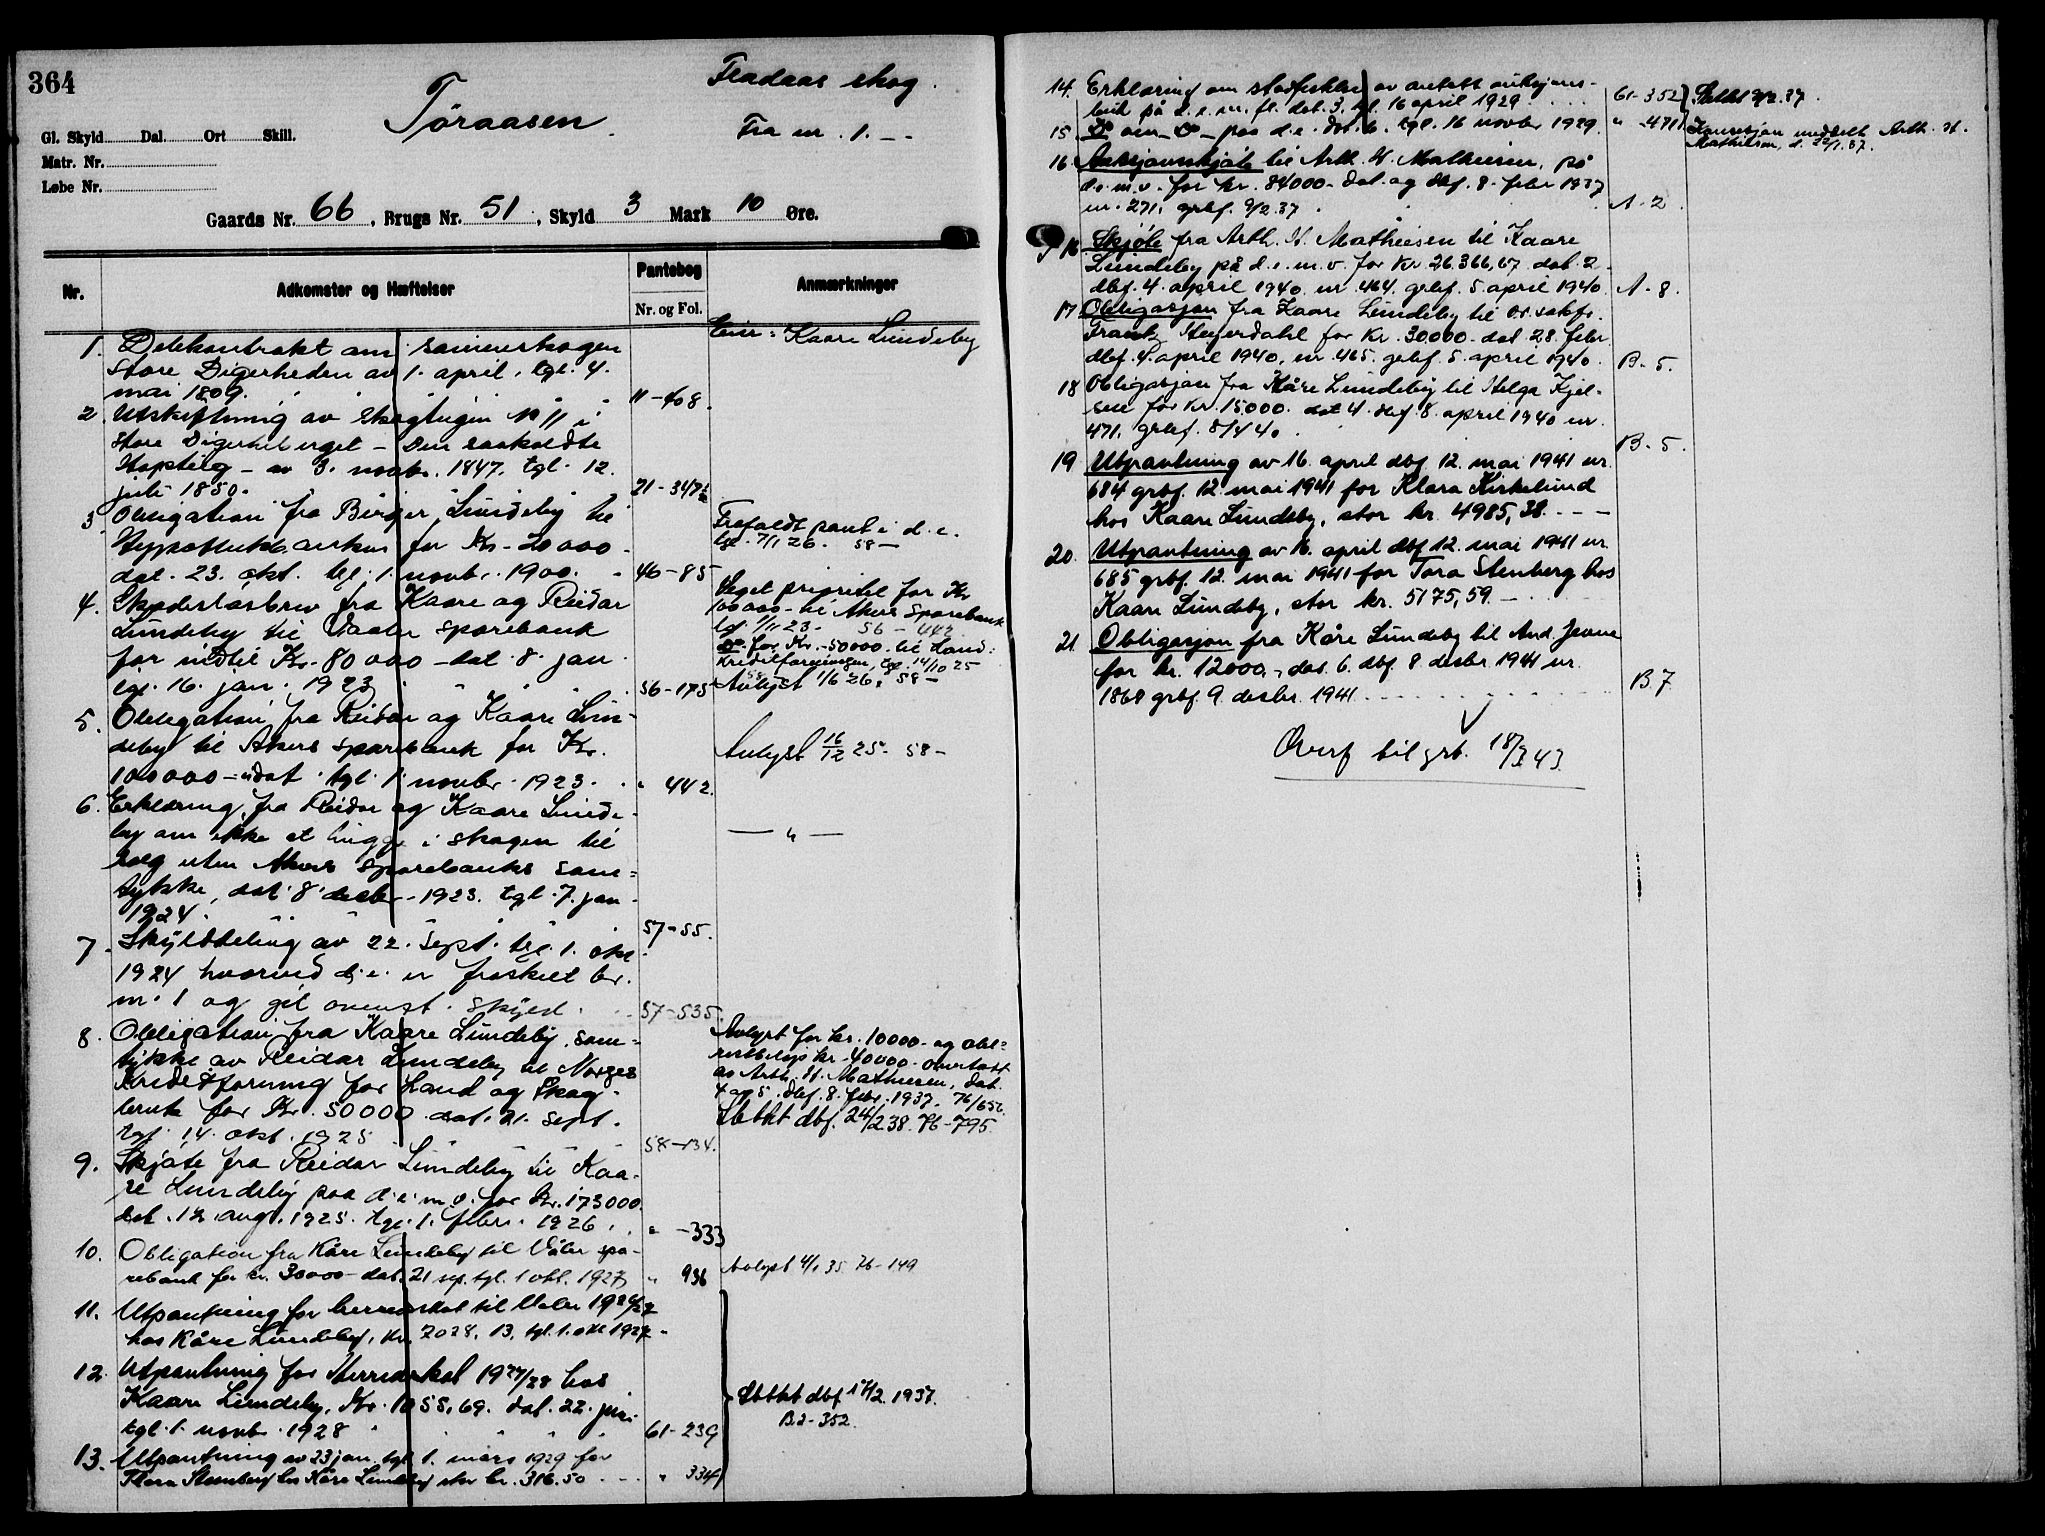 364
Tøraasen
Fladaas skog.
Fra nr. 1. –
Gl. Skyld Dal. Ort Skill.
Matr. Nr.
Løbe Nr.
Gaards Nr. 66, Brugs Nr. 51, Skyld 3 Mark 10 Øre.
Nr. Adkomster og Hæftelser Pantebog Anmærkninger
Nr. og Fol.
Eier: Kaare Lundeby
1. Delekontrakt om sameieskogen
Store Digerheden av 1. april, tgl. 4.
mai 1809. 11-408.
2. Utskiftning av skogteigen No 11 i
Store Digerheberget – Den saakaldte
– av 3. novbr. 1847. tgl. 12.
juli 1850. 21-347b
3. Obligation fra Birger Lundeby til
Hypothekbanken for Kr. 20000
dat. 23. okt. tgl. 1. novbr. 1900. 46-85
Frafaldt pant i d.e.
tgl. 7/1 26. 58–
4. Skadesløsbrev fra Kaare og Reidar
Lundeby til Vaaler sparebank
for indtil Kr. 80000 – dat. 8. jan.
tgl. 16. jan. 1923 56-175
Veget prioritet for Kr
100000 – til Akers Sparebank
tgl. 1/11 23. 56-442.
Do for Kr. 50000 til Land:
kreditforeningen, tgl. 14/10 25
Avlyst 1/6 26. 58–
5. Obligation fra Reidar og Kaare Lun-
deby til Akers sparebank for Kr.
100000 – udat. tgl. 1. novbr. 1923. " 442.
Avlyst 16/12 25. 58–
6. Erklæring fra Reidar og Kaare Lunde-
by om ikke at hugge i skogen til
salg uten Akers Sparebanks sam=
tykke, dat. 8 desbr. 1923. tgl. 7. jan.
1924. 57-55.
— " —
7. Skylddeling av 22. sept. tgl. 1. okt
1924 hvorved d.e. er fraskilt br.
nr. 1 og git ovenst. skyld. 57-535.
8. Obligation fra Kaare Lundeby, sam=
tykke av Reidar Lundeby til Norges
Kreditforening for Land og Skog-
bruk for Kr. 50000 dat. 21. sept.
tgl. 14. okt. 1925 58-134.
Avlyst for kr. 10000 – og obl=
restbeløp kr. 40000 – overtatt
av Arth. H. Mathiesen, dat.
4 og 5. dbf. 8. febr. 1937. 76/652.
Slettet dbf. 24/2 38. 76-795.
9. Skjøte fra Reidar Lundeby til Kaa-
re Lundeby paa d.e. m.v. for Kr. 173000
dat. 12. aug. 1925. tgl. 1. febr. 1926. " -333
10. Obligation fra Kåre Lundeby til Våler spa-
rebank for kr. 30000 – dat. 21 sep. tgl. 1 okt. 1927 " 936
Avlyst 4/1 35 76-149
11. Utpantning for herredskat til Vaaler 1926/27
hos Kåre Lundeby, kr. 2028,13, tgl. 1. okt 1927
12. Utpantning for Herredskat 1927/28 hos
Kaare Lundeby, Kr. 1055,69. dat. 22. juni
tgl. 1. novbr. 1928 61-239
Slettet dbf 17/2. 1937.
B2-352.
13. Utpantning av 23 jan. tgl. 1. mars 1929 for
Stenberg hos Kåre Lundeby stor kr. 316.50 " 334
14. Erklæring om stadfestelse av avtatt auksjons-
bud på d.e. m.fl. dat. 3. tgl. 16 april 1929 61-352
Slettet 9/2.37.
15 Do om Do paa d.e. dat. 6. tgl. 16 novbr 1929. " -471
Konsesjon meddelt Arth. H.
Mathiesen, d. 22/1.37.
16 Auksjonsskjøte til Arth. H. Mathiesen, på
d.e. m.v. for kr. 84000 – dat. og dbf. 8. febr 1937
nr. 271. grbf. 9/2.37 A-2.
16. Skjøte fra Arth. H. Mathiesen til Kaare
Lundeby på d.e. m.v. for kr 26.366,67 dat. 2.
dbf. 4. april 1940. nr 464. grbf. 5. april 1940. A-8.
17 Obligasjon fra Kaare Lundeby til o.r. sakf.
Frantz Heyerdahl for kr. 30.000 – dat 28. febr.
dbf. 4. april 1940, nr. 465. grbf. 5. april 1940. B-5.
18 Obligasjon fra Kåre Lundeby til Helga Kjel-
sen for kr. 15000. dat 4. dbf. 8. april 1940 nr.
471. grbf. 8/4 40. B-5.
19 Utpantning av 16. april dbf. 12. mai 1941 nr.
684 grbf. 12. mai 1941 for Klara Kirkelund
hos Kaare Lundeby, stor kr. 4985,38. – – –
20. Utpantning av 16. april dbf. 12. mai 1941 nr.
685 grbf. 12. mai 1941 for Tora Stenberg hos
Kaare Lundeby, stor kr. 5175,59. –
21. Obligasjon fra Kåre Lundeby til And. Jevne
for kr. 12000, – dat. 6. dbf. 8. desbr. 1941 nr.
1860 grbf. 9. desbr. 1941. B.7
Overf til grb. 18/3 43.